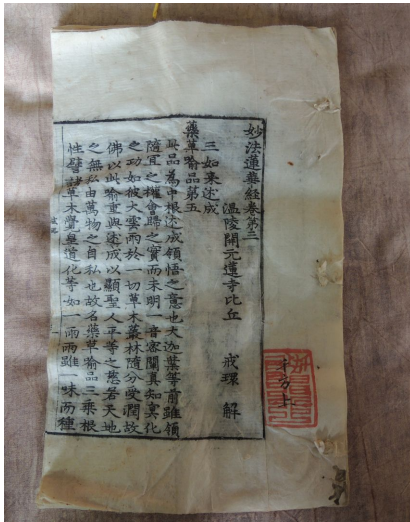 妙法蓮華經卷第三
溫陵開元蓮寺比丘 戒環 解
三如来述成
藥草喻品第五
此品為中根述成領悟之意也夫迦葉等前雖領
隨宜之權會歸之實而未明一音密闡真知冥化
之功如彼大雲雨於一切草木叢林隨分受潤故
佛以此喻重與述成以顯聖人平等之慈若天地
之無私由萬物之自私也故名藥草喻品三乘根
性譬諸草木覺皇道化等如一雨雨雖一味而種